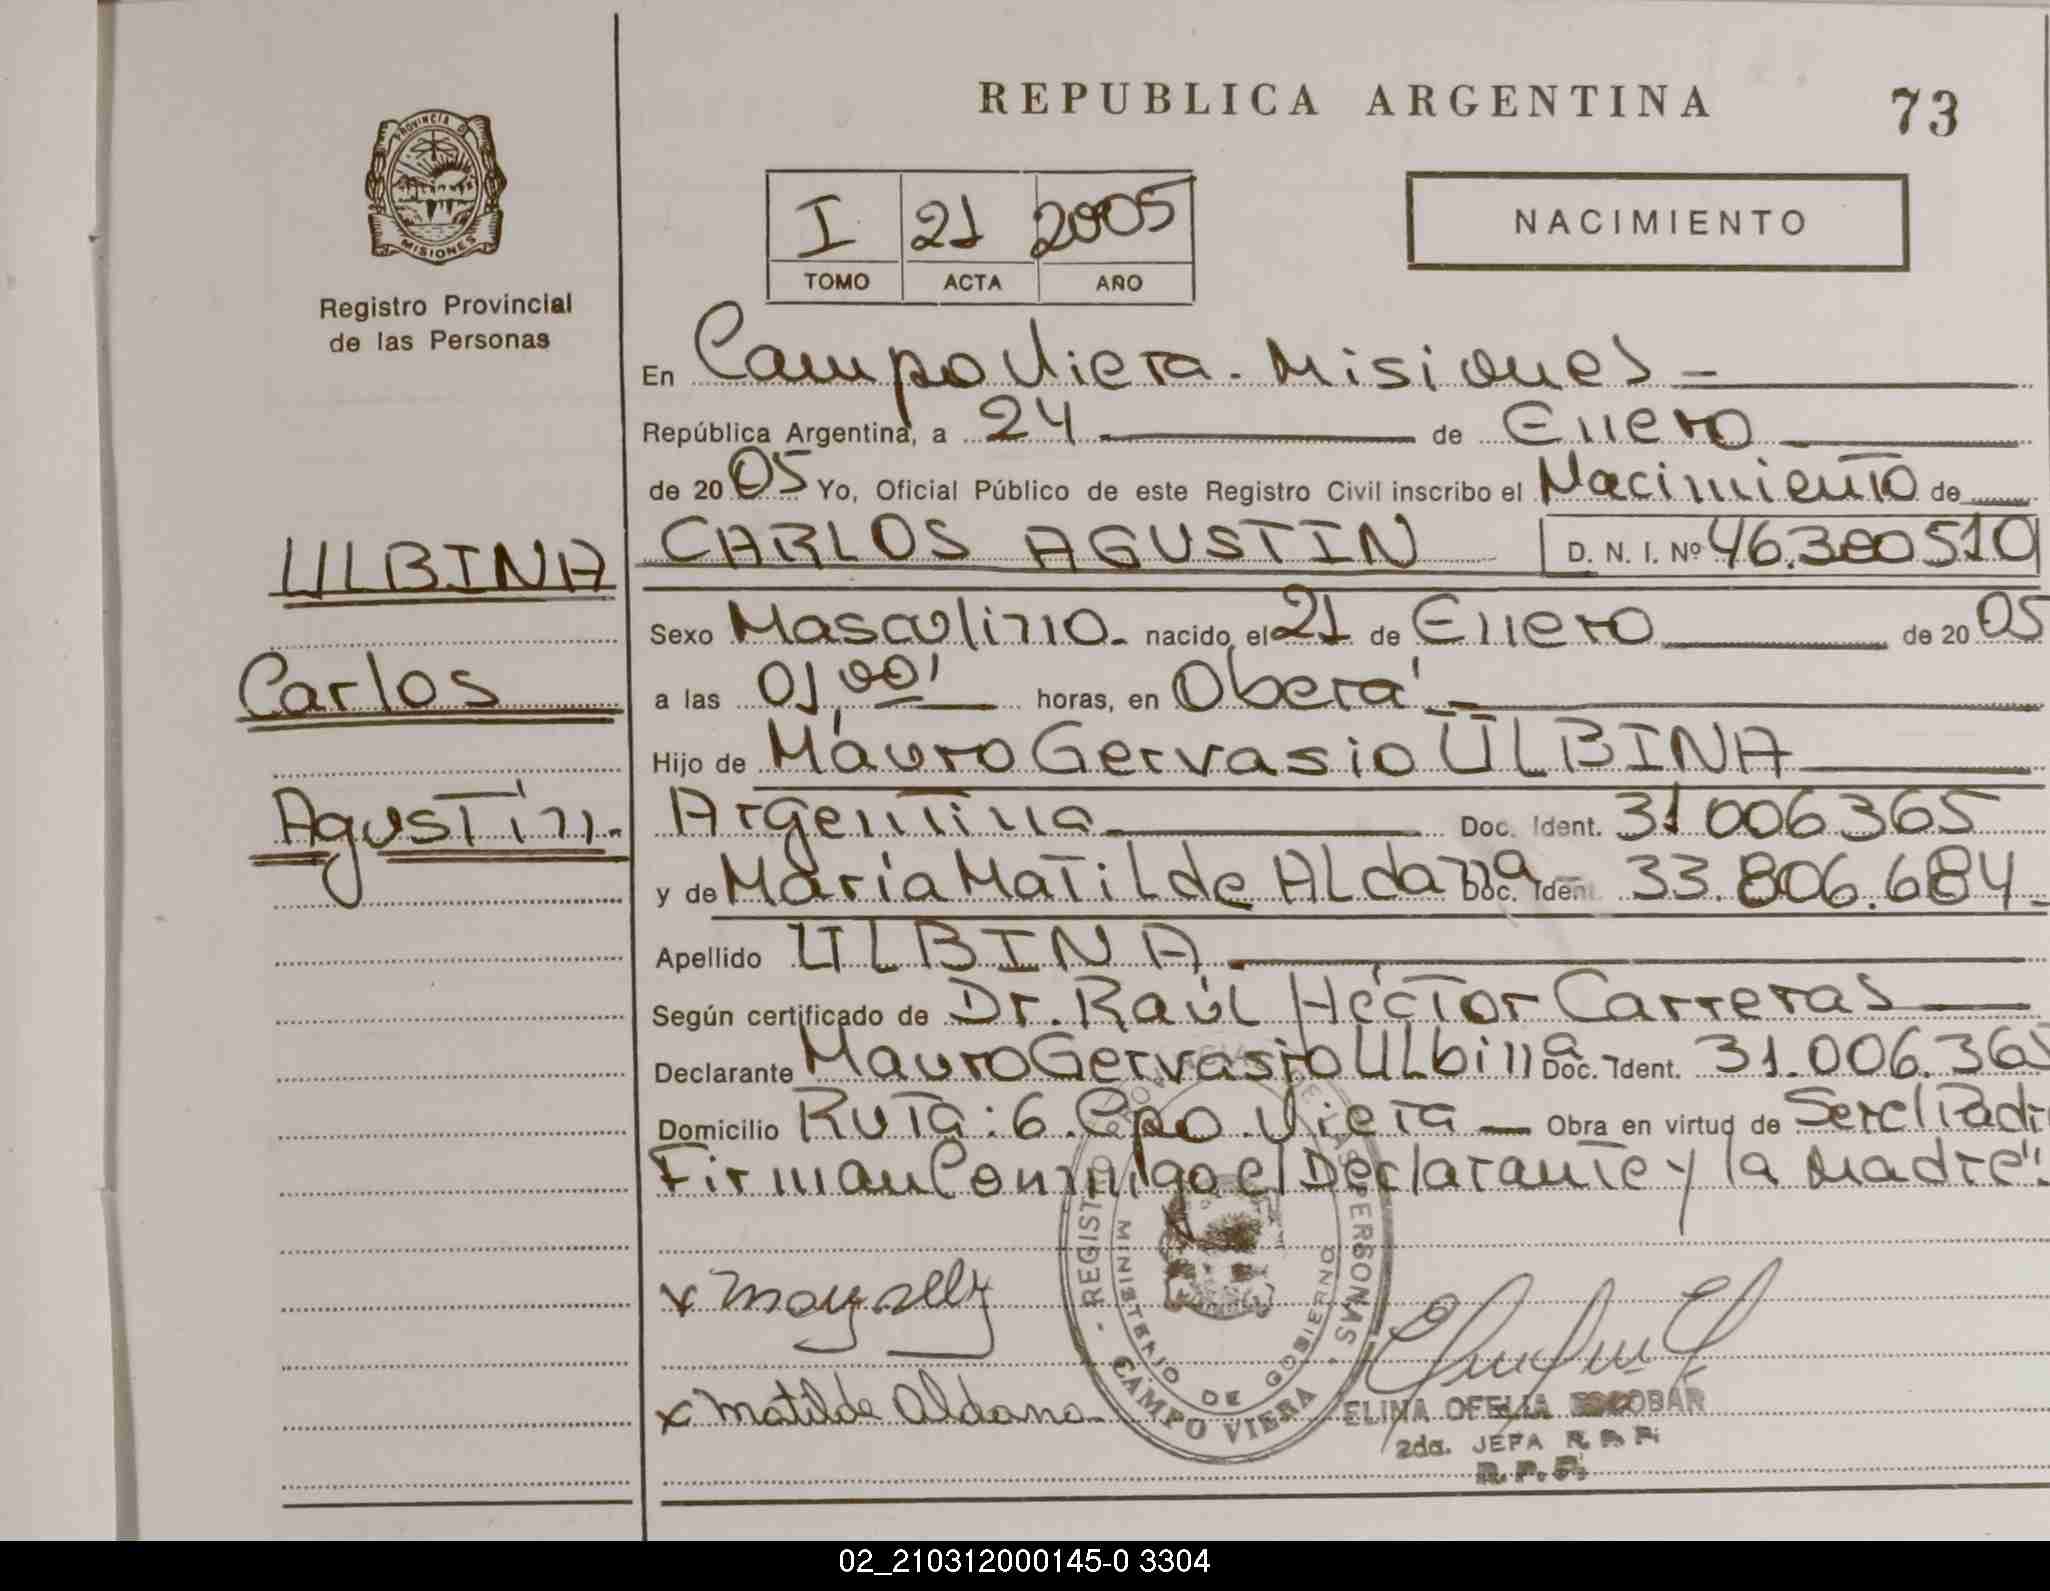 REPUBLICA ARGENTINA
73
PROVINCIA DE
MISIONES
Registro Provincial
de las Personas
I 21 2005
TOMO ACTA AÑO
NACIMIENTO
En Campo Viera - Misiones -
República Argentina, a 24 de Enero
de 2005 Yo, Oficial Público de este Registro Civil inscribo el Nacimiento de
ULBINA
CARLOS AGUSTIN D. N. I. Nº 46.380510
Sexo Masculino - nacido el 21 de Enero de 2005
Carlos
a las 01,00' horas, en Oberá
Hijo de Mauro Gervasio ULBINA
Agustín.-
Argentina Doc. Ident. 31006365
y de María Matilde Aldana Doc. Ident. 33.806.684-
Apellido ULBINA
Según certificado de Dr. Raúl Héctor Carreras
Declarante Mauro Gervasio Ulbina Doc. Ident. 31.006.365
Domicilio Ruta: 6. Cpo. Viera - Obra en virtud de Ser el Padr
Firman Conmigo el Declarante y la Madre".
REGISTRO PERSONAS
MINISTERIO DE GOBIERNO
CAMPO VIERA
x Matilde Aldana
ELINA OFELIA ESCOBAR
2da. JEFA R. P. P.
R. P. P.
02_210312000145-0 3304